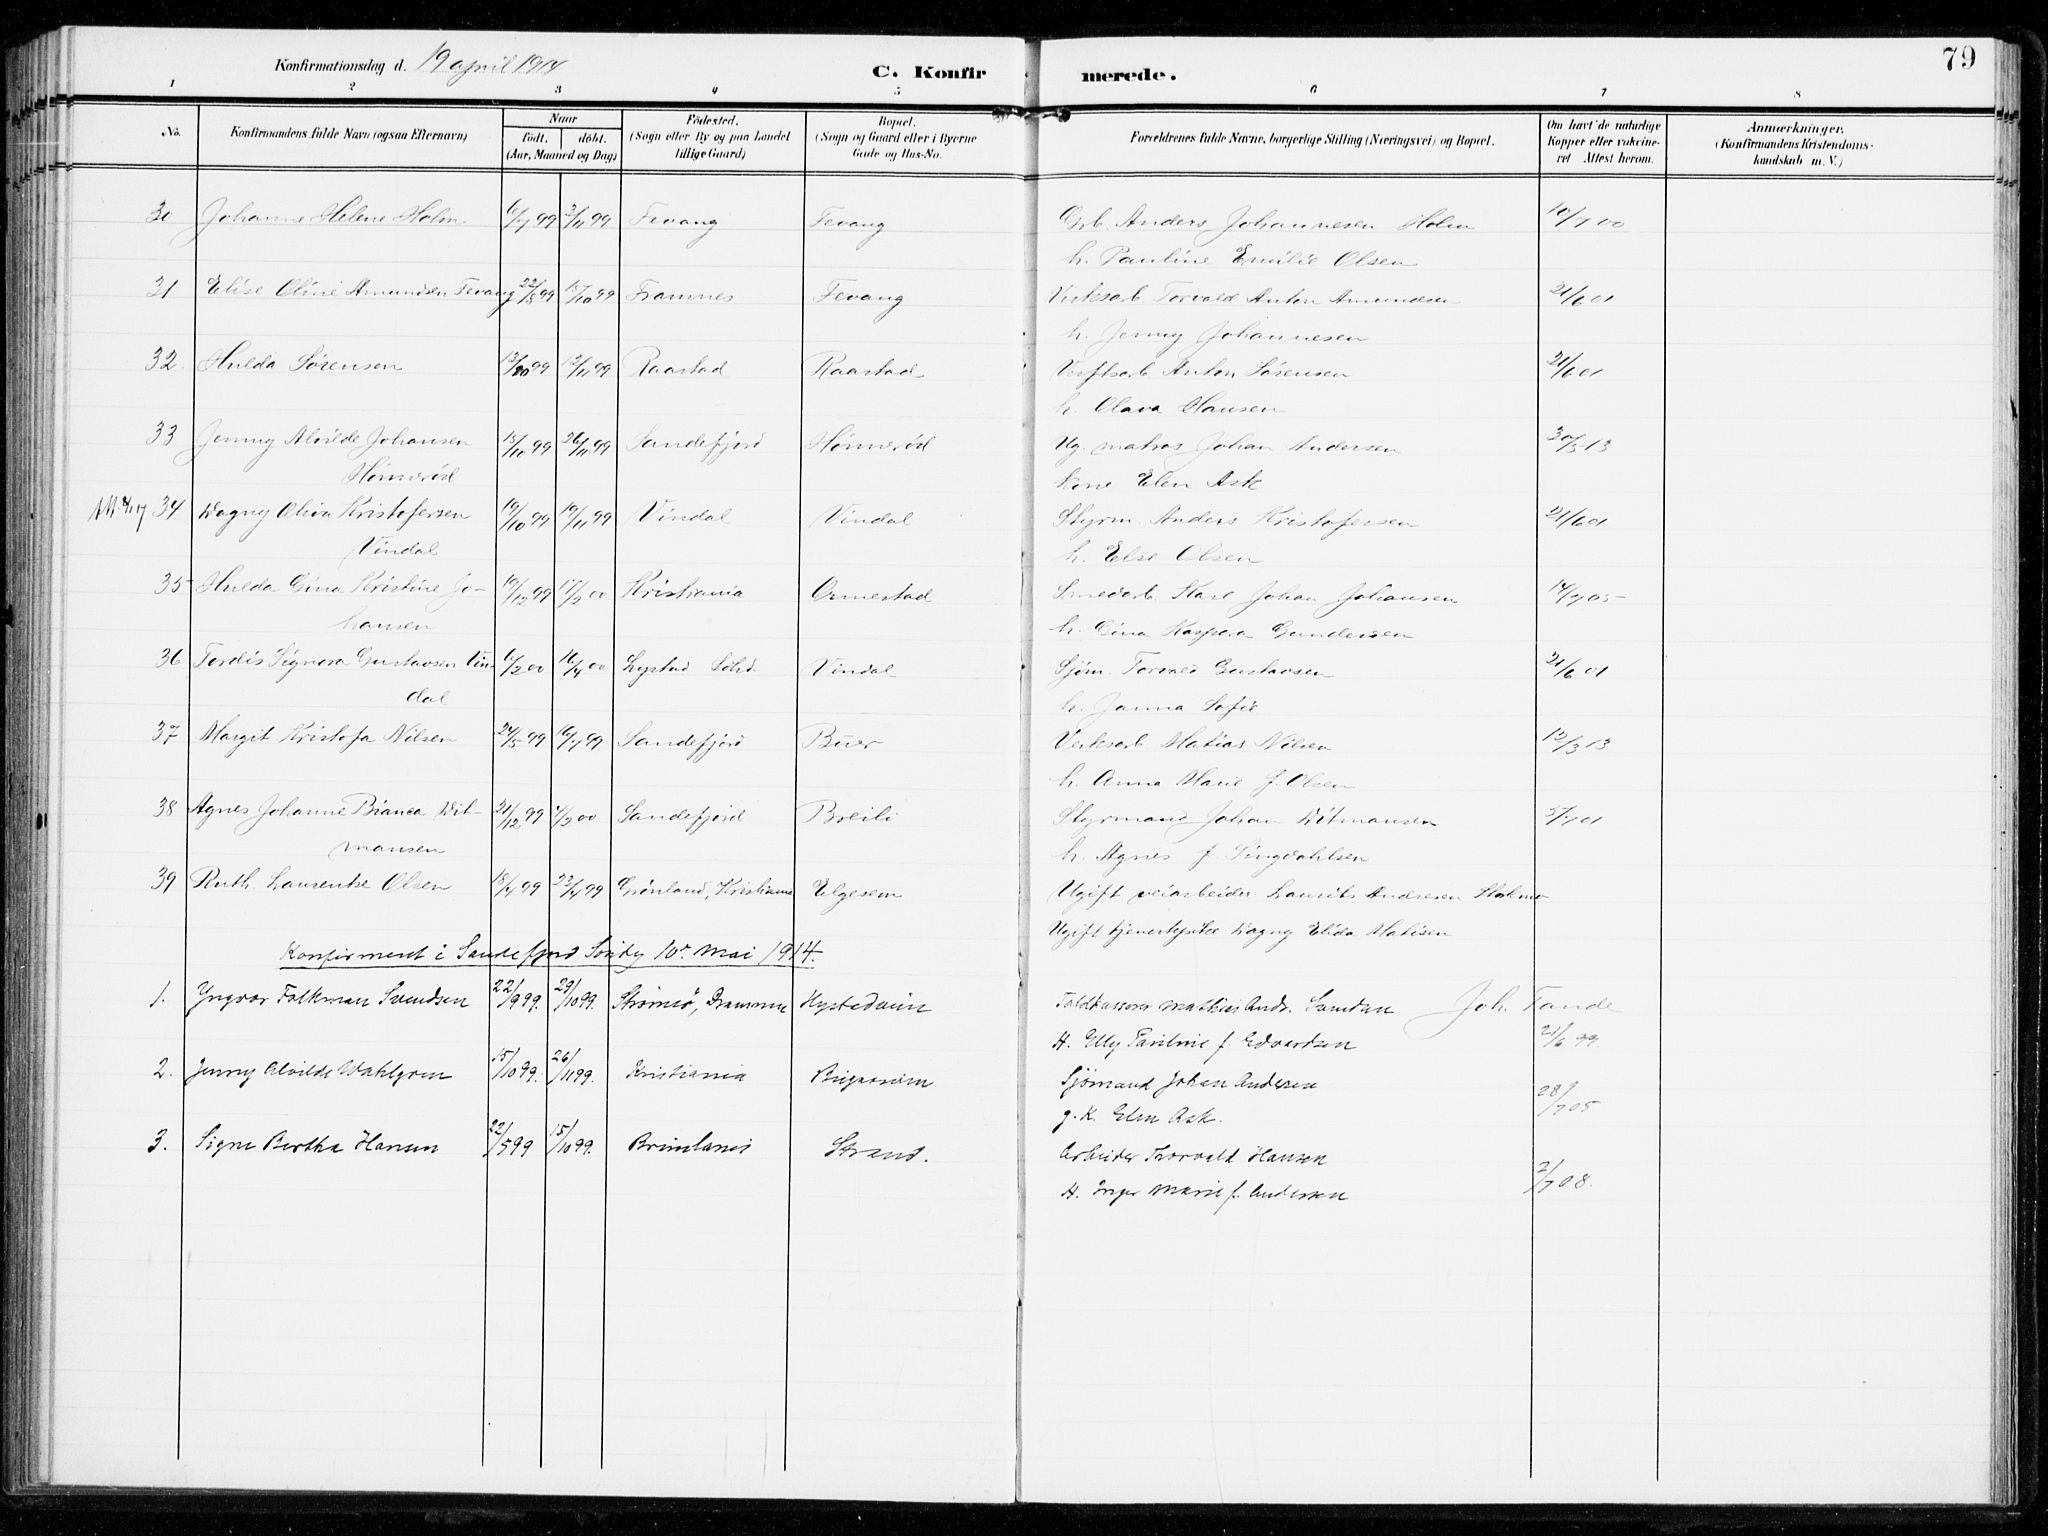 79
Konfirmationsdag d. 19 april 1914
C. Konfirmerede.
1 2 3 4 5 6 7 8
No. Konfirmandens fulde Navn (ogsaa Efternavn) Naar Födt. döbt. (Aar, Maaned og Dag) Födested. (Sogn eller By og paa Landet tillige Gaard) Bopæl. (Sogn og Gaard eller i Byerne Gade og Hus-No. Forældrenes fulde Navne, borgerlige Stilling (Næringsvei) og Bopæl. Om havt de naturlige Kopper eller vakcineret Attest herom. Anmærkninger. (Konfirmandens Kristendomskundskab m. V.)
30 Johanne Helene Holm 6/7 99 3/11 99 Fevang Fevang Grb. Anders Johannesen Holm 10/7 00
h. Pauline Emilie Olsen
31 Elise Oline Amundsen Fevang 22/8 99 15/10 99 Framnes Fevang Verksarb Torvald Anton Amundsen 21/6 01
h. Jenny Johannesen
32. Hulda Sörensen 13/10 99 12/11 99 Raastad Raastad Verftsarb Anton Sörensen 21/6 01
h. Olava Hansen
33 Jenny Alvilde Johansen 15/10 99 26/11 99 Sandefjord Hönneröd Ug. matros Johan Andersen 30/5 13
Hönneröd kone Elen Ask
34 Dagny Oliva Kristofersen 19/10 99 19/11 99 Vindal Vindal Styrm. Anders Kristofersen 21/6 01
Vindal h. Else Olsen
35 Hulda Gina Kristine Jo- 19/12 99 17/2 00 Kristiania Ormestad Smedarb. Karl Johan Johansen 14/7 05
hansen h. Gina Kaspara Gundersen
36 Tordis Signora Gustavsen Vin 6/2 00 16/4 00 Lystad Vindal Sjöm. Torvald Gustavsen 21/6 01
dal h. Janna Sofie
37 Margit Kristofa Nilsen 24/5 99 16/7 99 Sandefjord Buer Verksarb Matias Nilsen 12/3 13
h. Anna Marie f. Olsen
38 Agnes Johanne Bianca Dit- 21/12 99 4/2 00 Sandefjord Breili Styrmand Johan Ditmansen 5/7 01
mansen h. Agnes f. Singdahlsen
39 Ruth Laurentse Olsen 18/4 99 23/4 99 Grönland, Kristiania Elgesem Ugift veiarbeider Laurits Andresen
Ugift tjenestepike Dagny Elida Matisen
Konfirmert i Sandefjord Söndag 10de Mai 1914.
1. Yngvar Folkman Svendsen 22/9 99. 29/10 99. Strömsö, Drammen Hystadveien Toldkasserer Mathias Andr. Svendsen Joh. Tande
H. Elly Pauline f. Edvardsen 21/6 99.
2. Jenny Alvilde Wahlgren 15/10 99. 26/11 99. Kristiania Bugaarden Sjömand Johan Andersen
g. K. Elen Ask. 28/7 05
3. Signe Bertha Hansen 22/5 99 15/10 99. Strand. Arbeider Thorvald Hansen
H. Inger Marie f. Andersen 2/7 08.